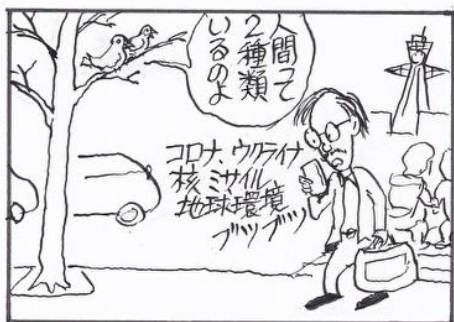 人間って
2種類
いるのよ
コロナ、ウクライナ
核ミサイル
地球環境
ブツブツ